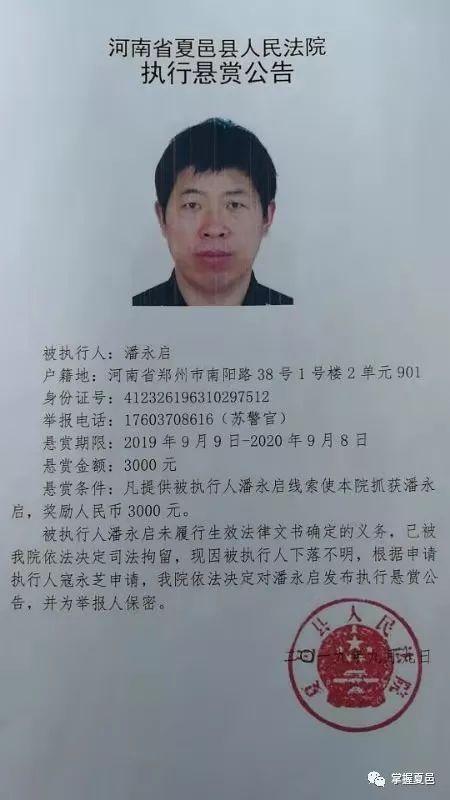 河南省夏邑县人民法院
执行悬赏公告
被执行人：潘永启
户籍地：河南省郑州市南阳路38号1号楼2单元901
身份证号：412326196310297512
举报电话：17603708616（苏警官）
悬赏期限：2019年9月9日-2020年9月8日
悬赏金额：3000元
悬赏条件：凡提供被执行人潘永启线索使本院抓获潘永
启，奖励人民币3000元。
被执行人潘永启未履行生效法律文书确定的义务，已被
我院依法决定司法拘留，现因被执行人下落不明，根据申请
执行人寇永芝申请，我院依法决定对潘永启发布执行悬赏公
告，并为举报人保密。
二〇一九年九月九日
夏邑县人民法院
掌握夏邑